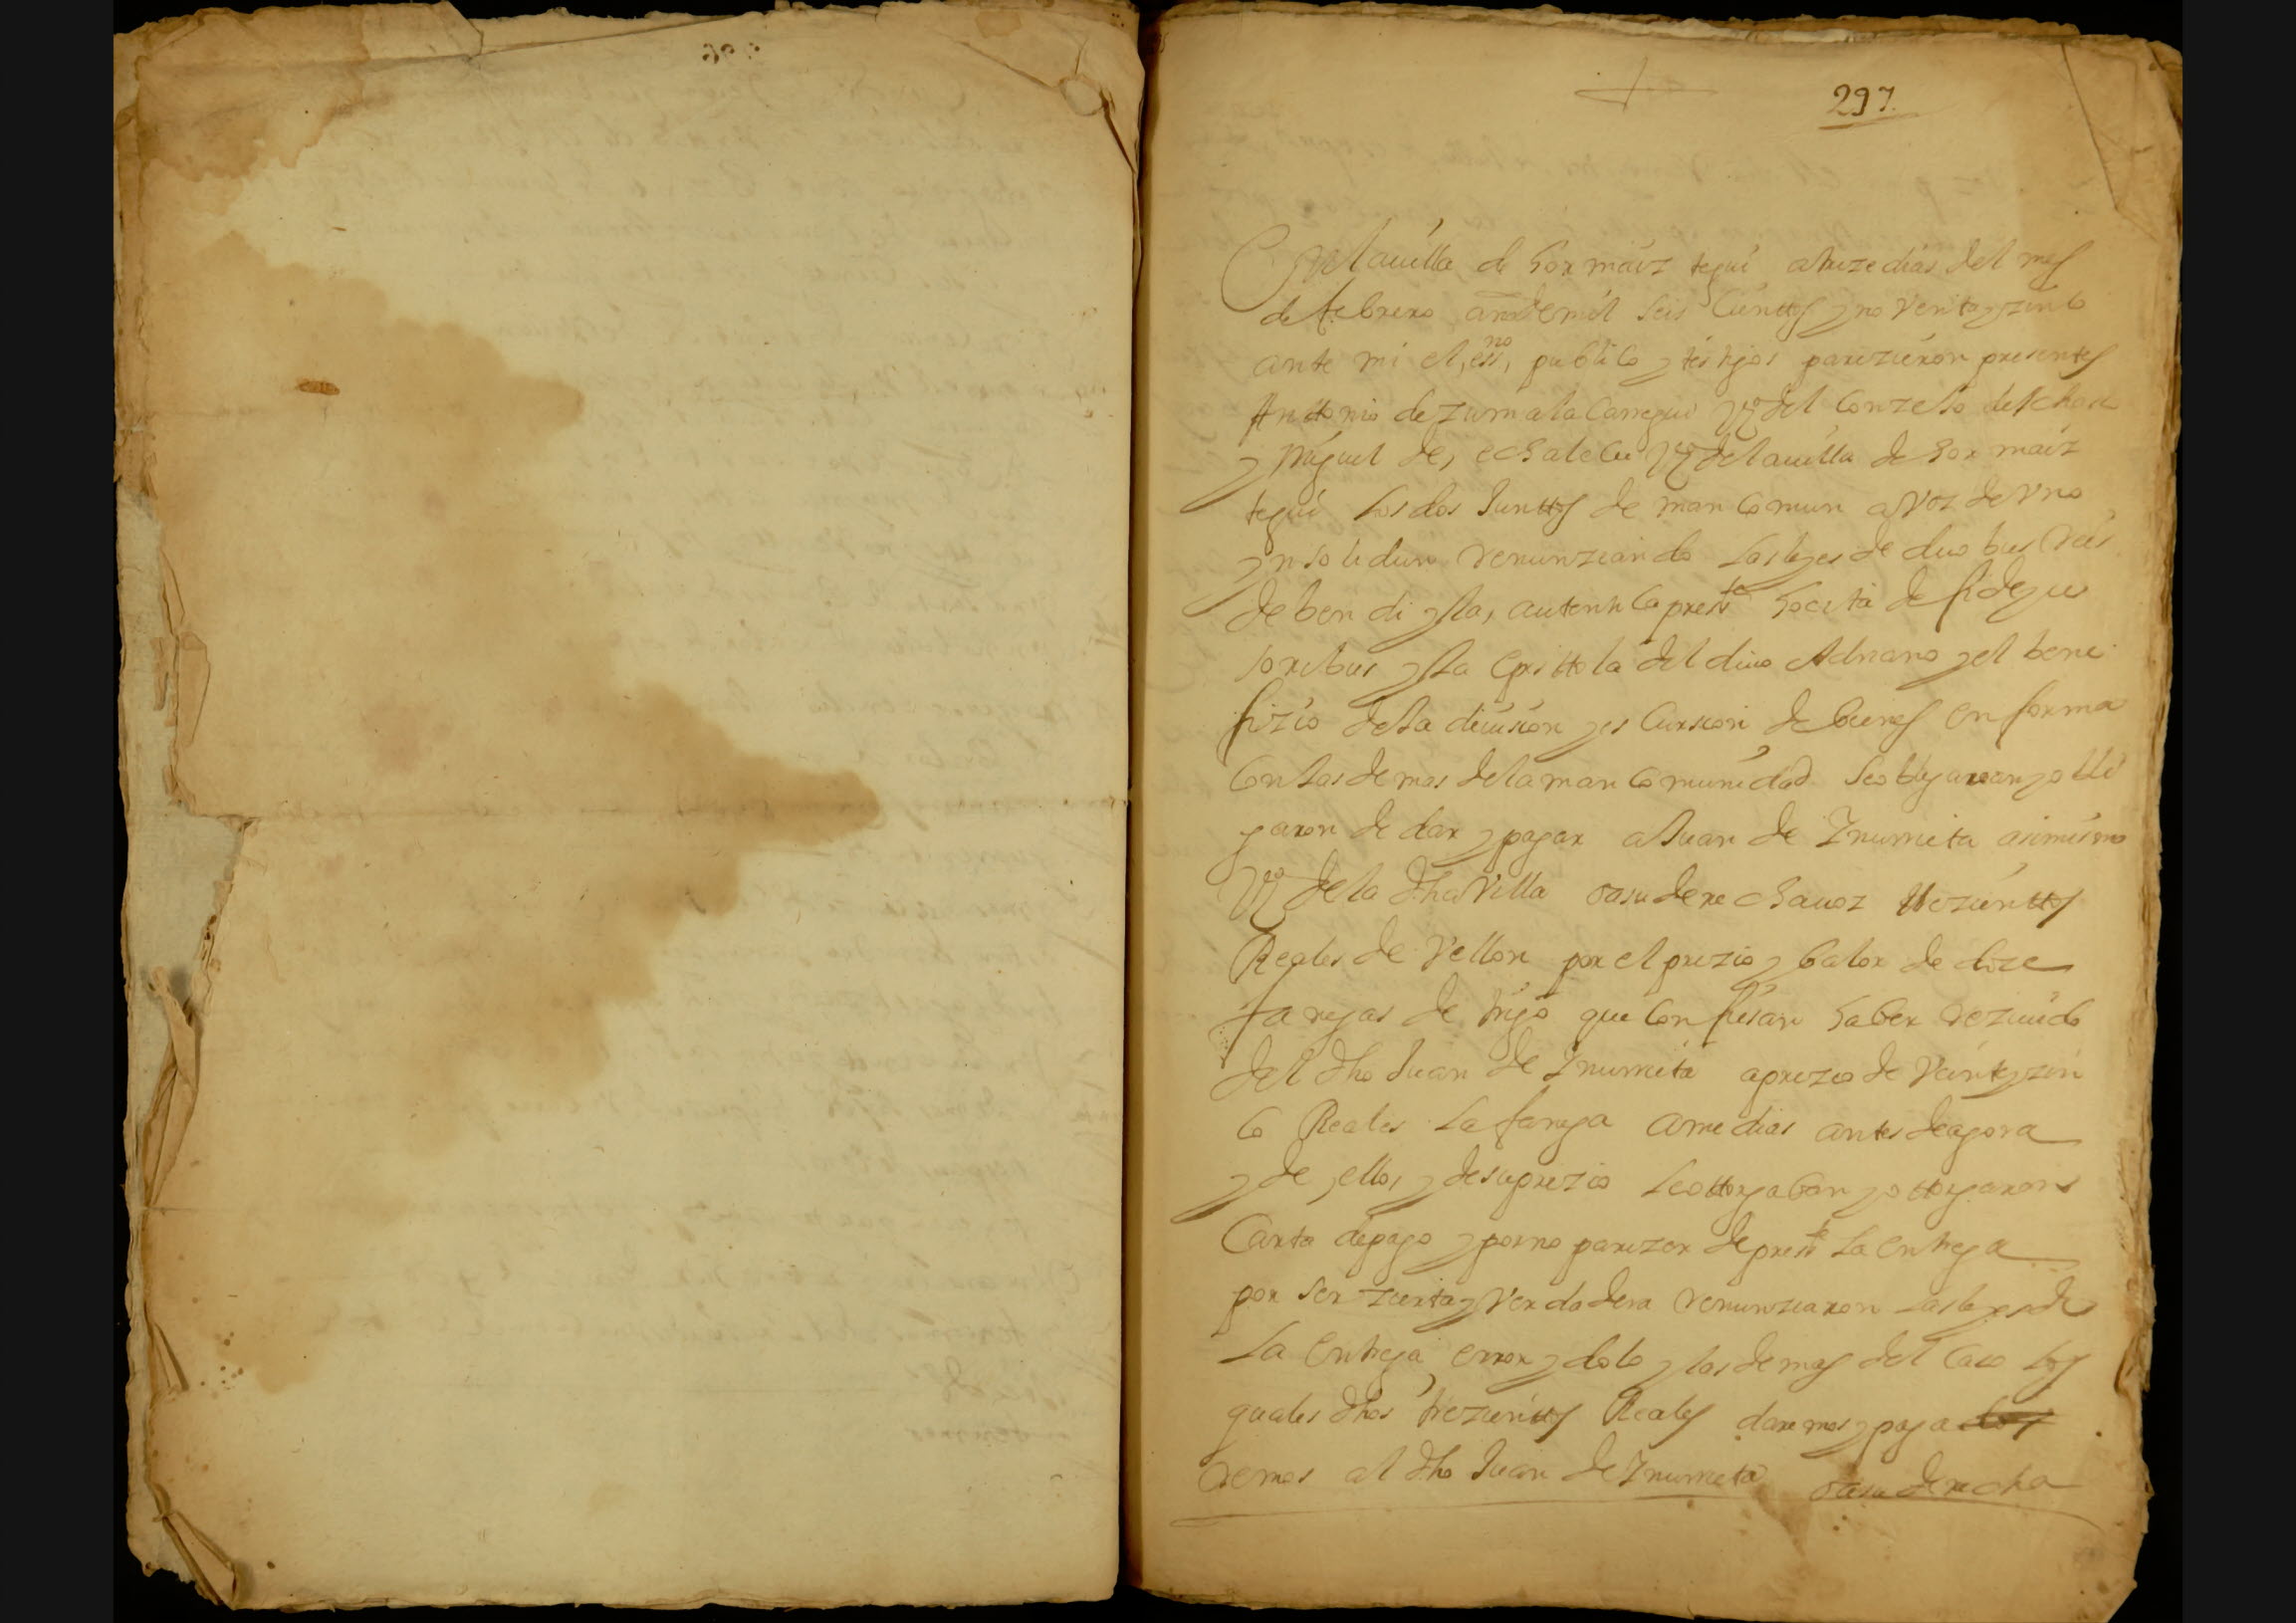 297.
En la uilla de hormaiz tegui a treze dias del mes
de febrero año de mil seis Cientos y no venta y zinco
ante mi el, essno, publico y testigos parezieron presentes
Anttonio de zumalacarregui vzo del Conzejo de
y Miguel de, echalecu vzo de la uilla de hor maiz
tegui los dos Junttos de man comun a voz de vno
yn solidun renunziando las leyes de duo bus Reis
de ben di y la, autentica preste hocita de fideju
soribus y la epistto la del diuo Adriano y el bene
fizio de la diuision y es Cursion de bienes en forma
con las de mas de la man comunidad se obligauan y obli
garon de dar y pagar a Juan de Inurrieta asimismo
vzo de la dha villa o a su derecho auoz trezienttos
Reales de vellon por el prezio y balor de doze
fanegas de trigo que confiesan haber reziuido
del dho Juan de Inurrieta a prezio de veinte y zin
co Reales la fanega a medias antes de agora
y de, ello, y de su prezio le ottorgaban y ottorgaron
Carta de pago y por no parezer de preste la entrega
por ser zierta y verdadera renunziaron las leyes de
la entrega, error y dolo y las demas del caso los
quales dhos trezienttos Reales daremos y paga
remos al dho Juan de Inurrieta o a su derecho a